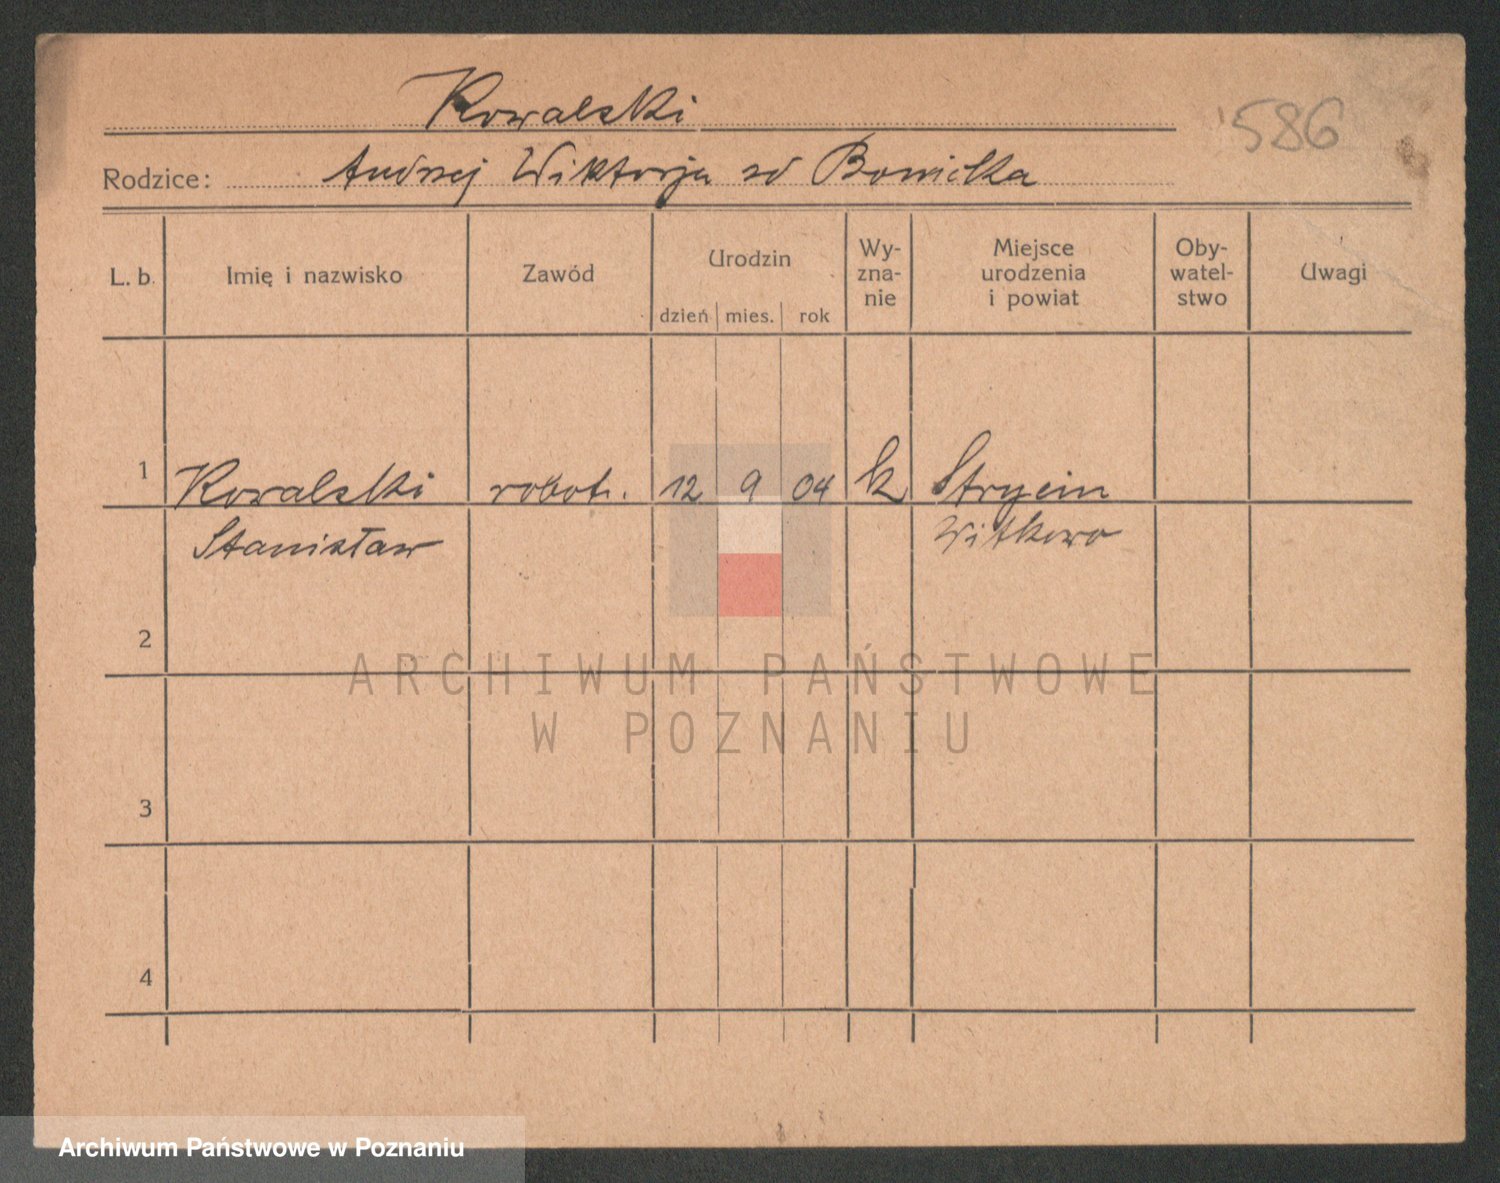 Kowalski
586
Rodzice: Andrzej Wiktorja zd
L. b. Imię i nazwisko Zawód Urodzin dzień mies. rok Wy-zna-nie Miejsce urodzenia i powiat Oby-watel-stwo Uwagi
1 Kowalski robotn. 12 9 04 k
Stanisław Witkowo
2
3
4
ARCHIWUM PAŃSTWOWE
W POZNANIU
Archiwum Państwowe w Poznaniu